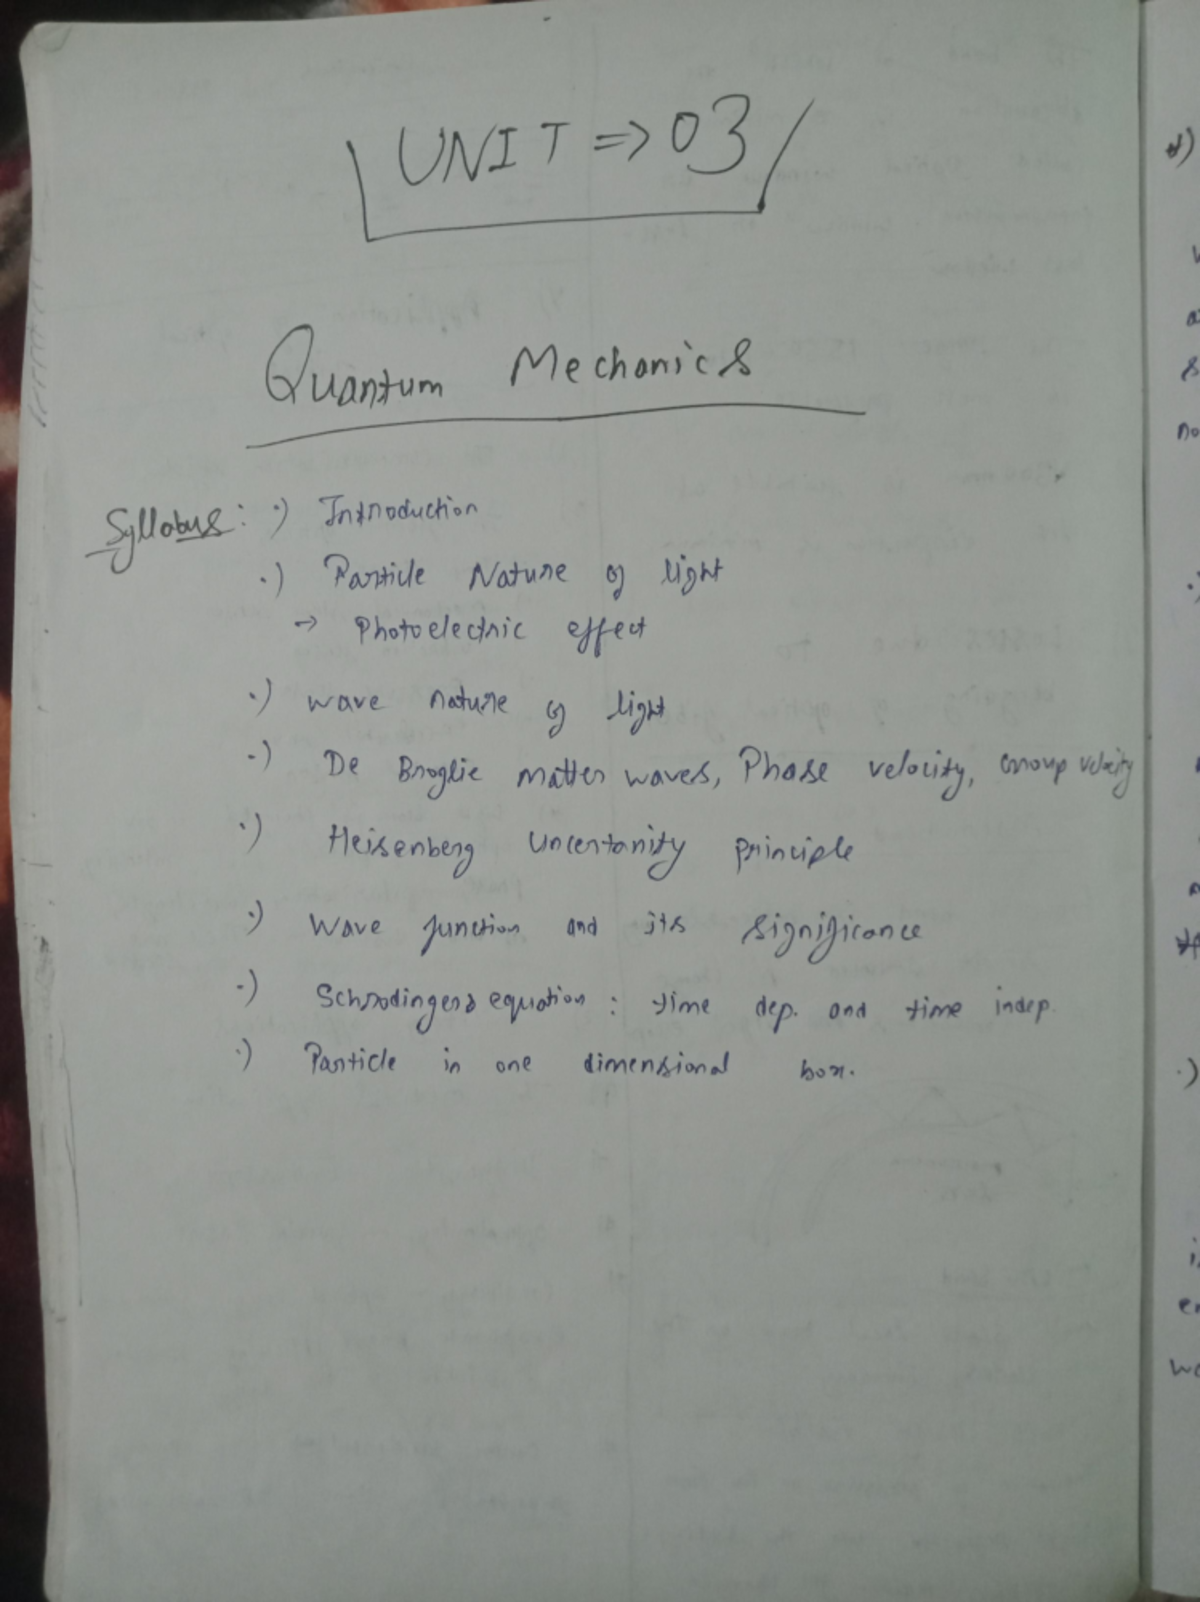 UNIT => 03
Quantum Mechanics
Syllabus: ·) Introduction
·) Particle Nature of light
→ Photoelectric effect
·) wave nature of light
·) De Broglie matter waves, Phase velocity, Group velocity
·) Heisenberg Uncertanity principle
·) Wave function and its significance
·) Schrodingers equation : time dep. and time indep.
·) Particle in one dimensional box.